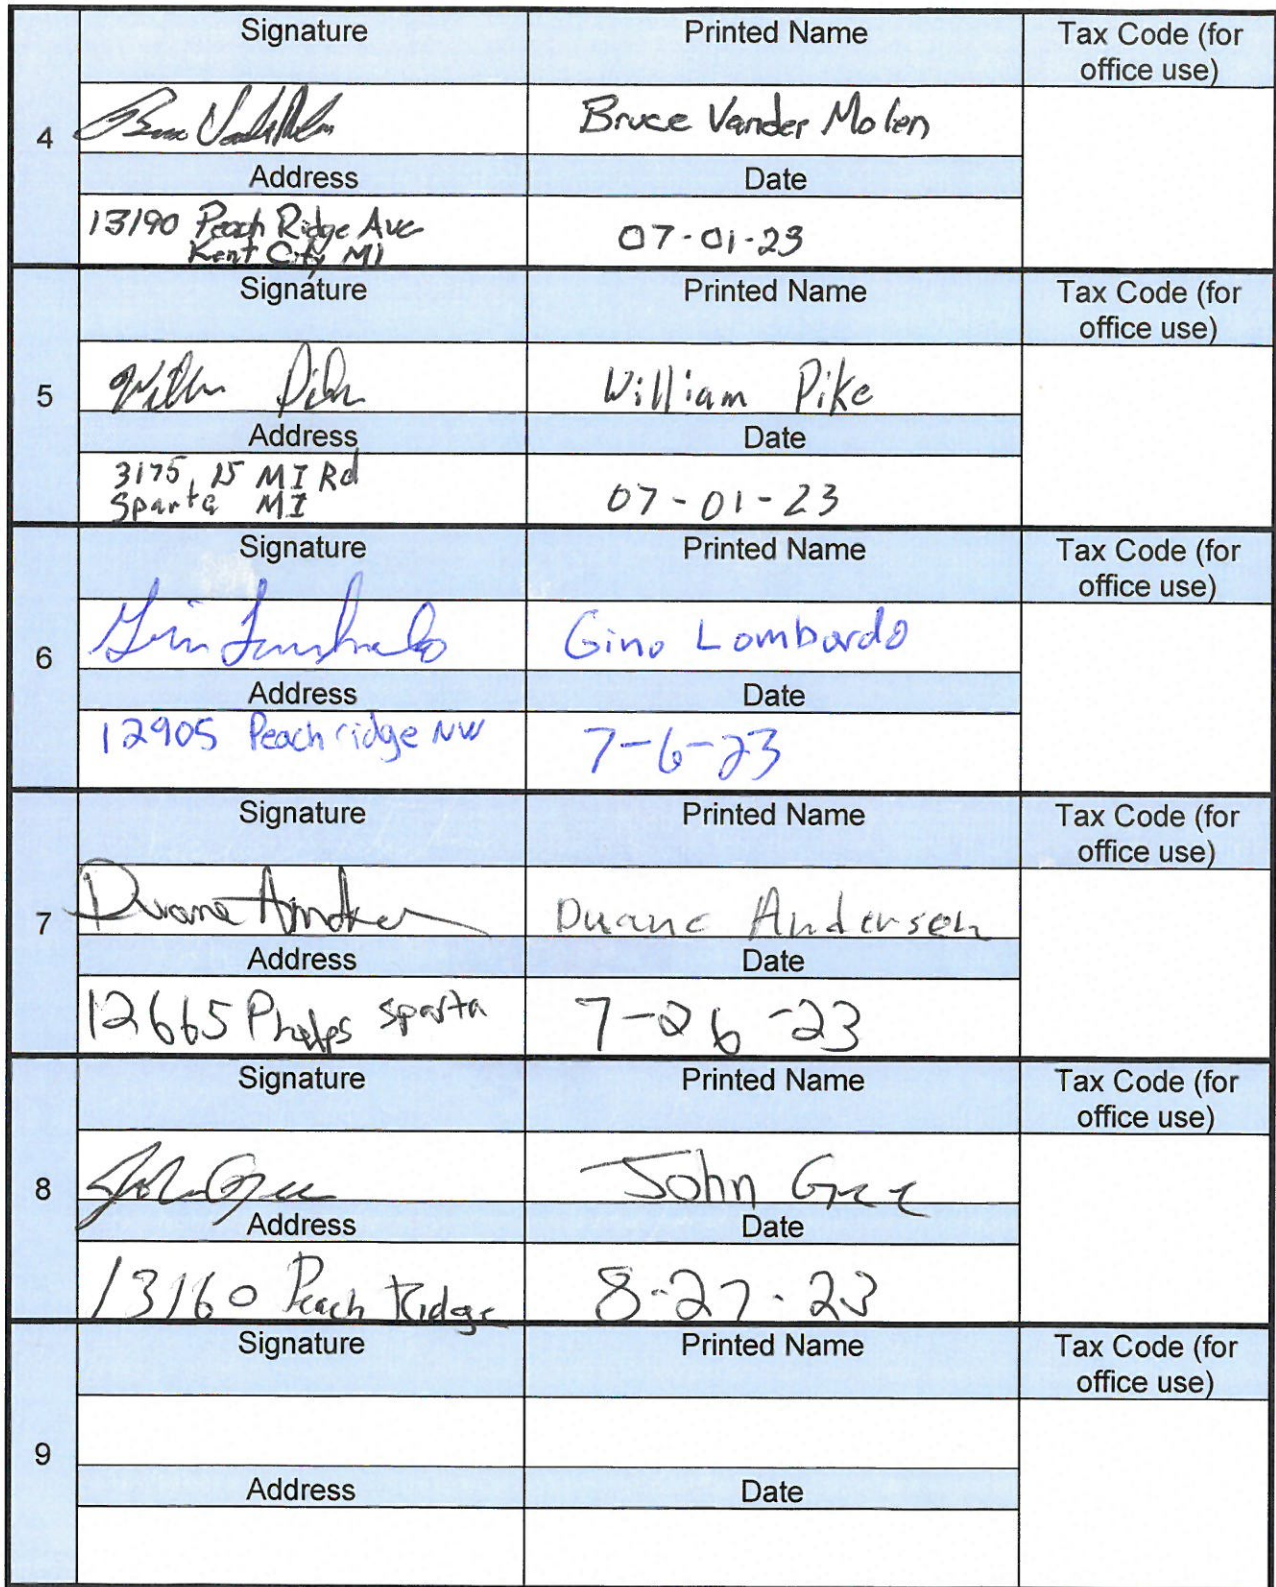 Signature Printed Name Tax Code (for
office use)
4 Bruce Vander Molen
Address Date
13190 Peach Ridge Ave 07-01-23
Kent City MI
Signature Printed Name Tax Code (for
office use)
5 William Pike
Address Date
3175, 15 MI Rd
Sparta MI 07-01-23
Signature Printed Name Tax Code (for
office use)
6 Gino Lombardo
Address Date
12905 Peachridge NW 7-6-23
Signature Printed Name Tax Code (for
office use)
7 Duane Andersen
Address Date
12665 Phelps Sparta 7-26-23
Signature Printed Name Tax Code (for
office use)
8 John Gree
Address Date
13160 Peach Ridge 8-27-23
Signature Printed Name Tax Code (for
office use)
9
Address Date